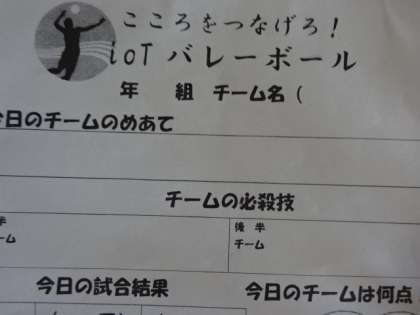 こころをつなげろ！
ioT バレーボール
年 組 チーム名（
今日のチームのめあて
チームの必殺技
半 後半
ーム チーム
今日の試合結果 今日のチームは何点